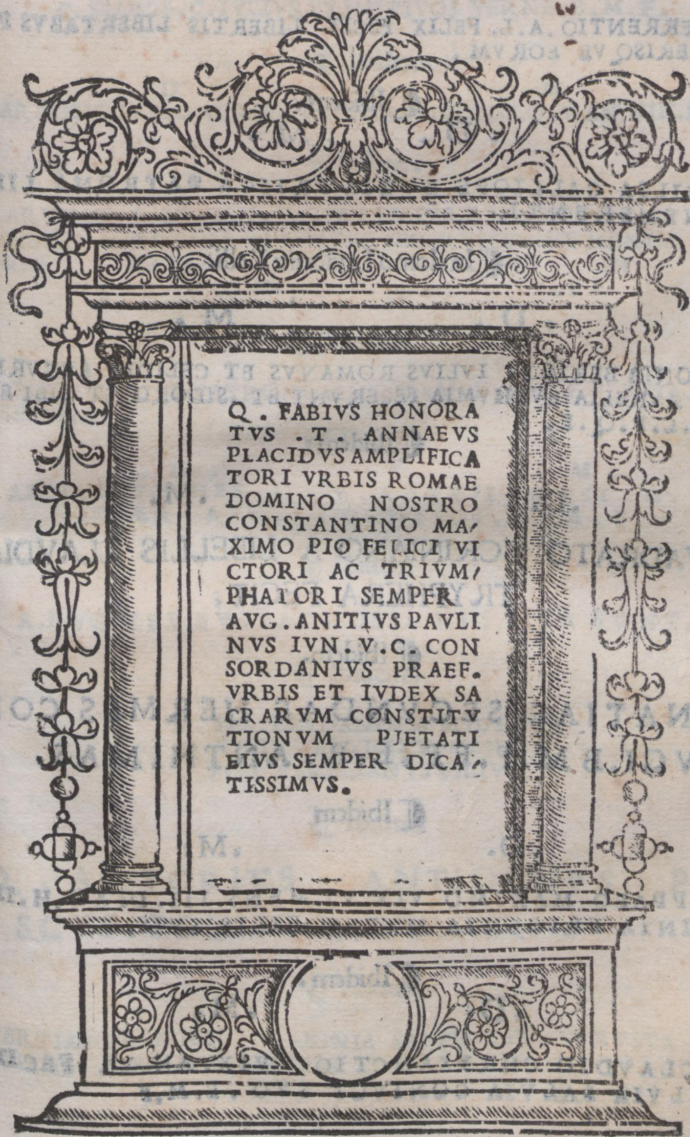 Q . FABIVS HONORA
TVS . T ANNAEVS
PLACIDVS AMPLIFICA
TORI VRBIS ROMAE
DOMINO NOSTRO
CONSTANTINO MA/
XIMO PIO FELICI VI
CTORI AC TRIVM/
PHATORI SEMPER
AVG. ANITIVS PAVLI
NVS IVN. V. C. CON
SORDANIVS PRAEF.
VRBIS ET IVDEX SA
CRARVM CONSTITV
TIONVM PJETATI
EIVS SEMPER DICA/
TISSIMVS.